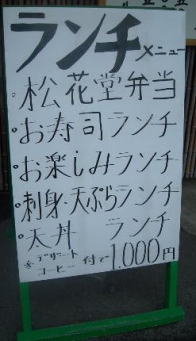 ランチメニュー
・松花堂弁当
・お寿司ランチ
・お楽しみランチ
・刺身・天ぷらランチ
・天丼 ランチ
※デザート
コーヒー付で1,000円